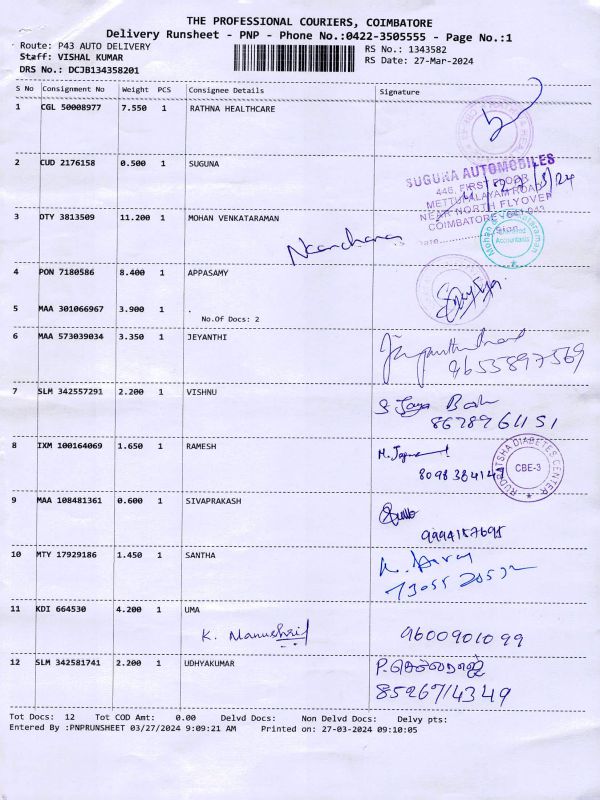 THE PROFESSIONAL COURIERS, COIMBATORE
Delivery Runsheet - PNP - Phone No.:0422-3505555 - Page No.:1
Route: P43 AUTO DELIVERY
RS No.: 1343582
Staff: VISHAL KUMAR
RS Date: 27-Mar-2024
DRS No.: DCJB134358201
S No Consignment No Weight PCS Consignee Details Signature
1 CGL 50008977 7.550 1 RATHNA HEALTHCARE
2 CUD 2176158 0.500 1 SUGUNA
SUGUNA AUTOMOBILES
446, FIRST FLOOR
METTUPALAYAM ROAD
NEAR NORTH FLYOVER
COIMBATORE - 641 043
3 DTY 3813509 11.200 1 MOHAN VENKATARAMAN
4 PON 7180586 8.400 1 APPASAMY
5 MAA 301066967 3.900 1 .
No.Of Docs: 2
6 MAA 573039034 3.350 1 JEYANTHI
9655897569
7 SLM 342557291 2.200 1 VISHNU
8678961151
8 IXM 100164069 1.650 1 RAMESH
RUDRATSHA DIABETES CENTER
CBE-3
9 MAA 108481361 0.600 1 SIVAPRAKASH
9994157695
10 MTY 17929186 1.450 1 SANTHA
11 KDI 664530 4.200 1 UMA
K. Manushrif
9600901099
12 SLM 342581741 2.200 1 UDHYAKUMAR
8526714349
Tot Docs: 12 Tot COD Amt: 0.00 Delvd Docs: Non Delvd Docs: Delvy pts:
Entered By :PNPRUNSHEET 03/27/2024 9:09:21 AM Printed on: 27-03-2024 09:10:05